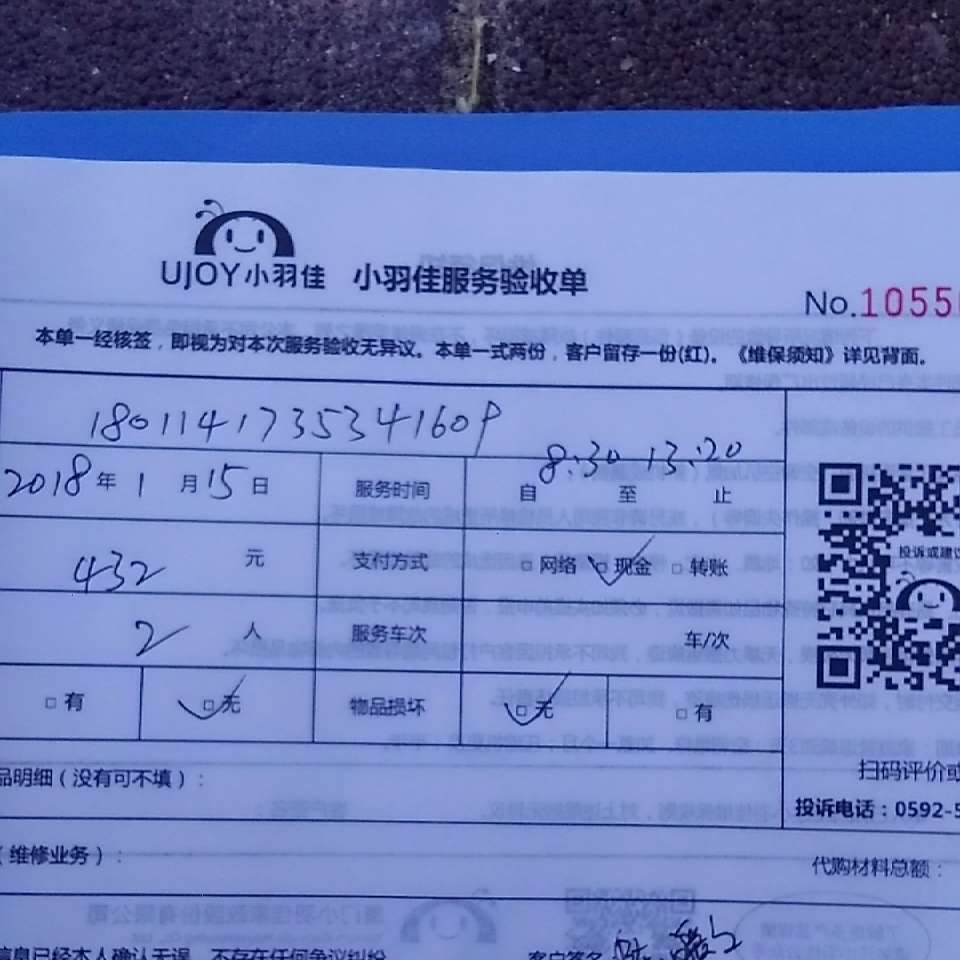 UJOY小羽佳 小羽佳服务验收单
No.1055
本单一经核签，即视为对本次服务验收无异议。本单一式两份，客户留存一份(红)。《维保须知》详见背面。
180114173534160
8:30 13:20
2018年1月15日 服务时间 自 至 止
投诉或建议
432元 支付方式 □网络 □现金 □转账
2人 服务车次 车/次
□有 □无 物品损坏 □无 □有
扫码评价或
品明细（没有可不填）：
投诉电话：0592-5
（维修业务）：
代购材料总额：
信息已经本人确认无误，不存在任何争议纠纷 客户签名